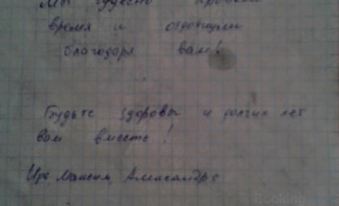 Мы чудесно провели
время и отдохнули
благодаря вам!
Будьте здоровы и долгих лет
вам вместе!
Максим, Александра
Booking.com